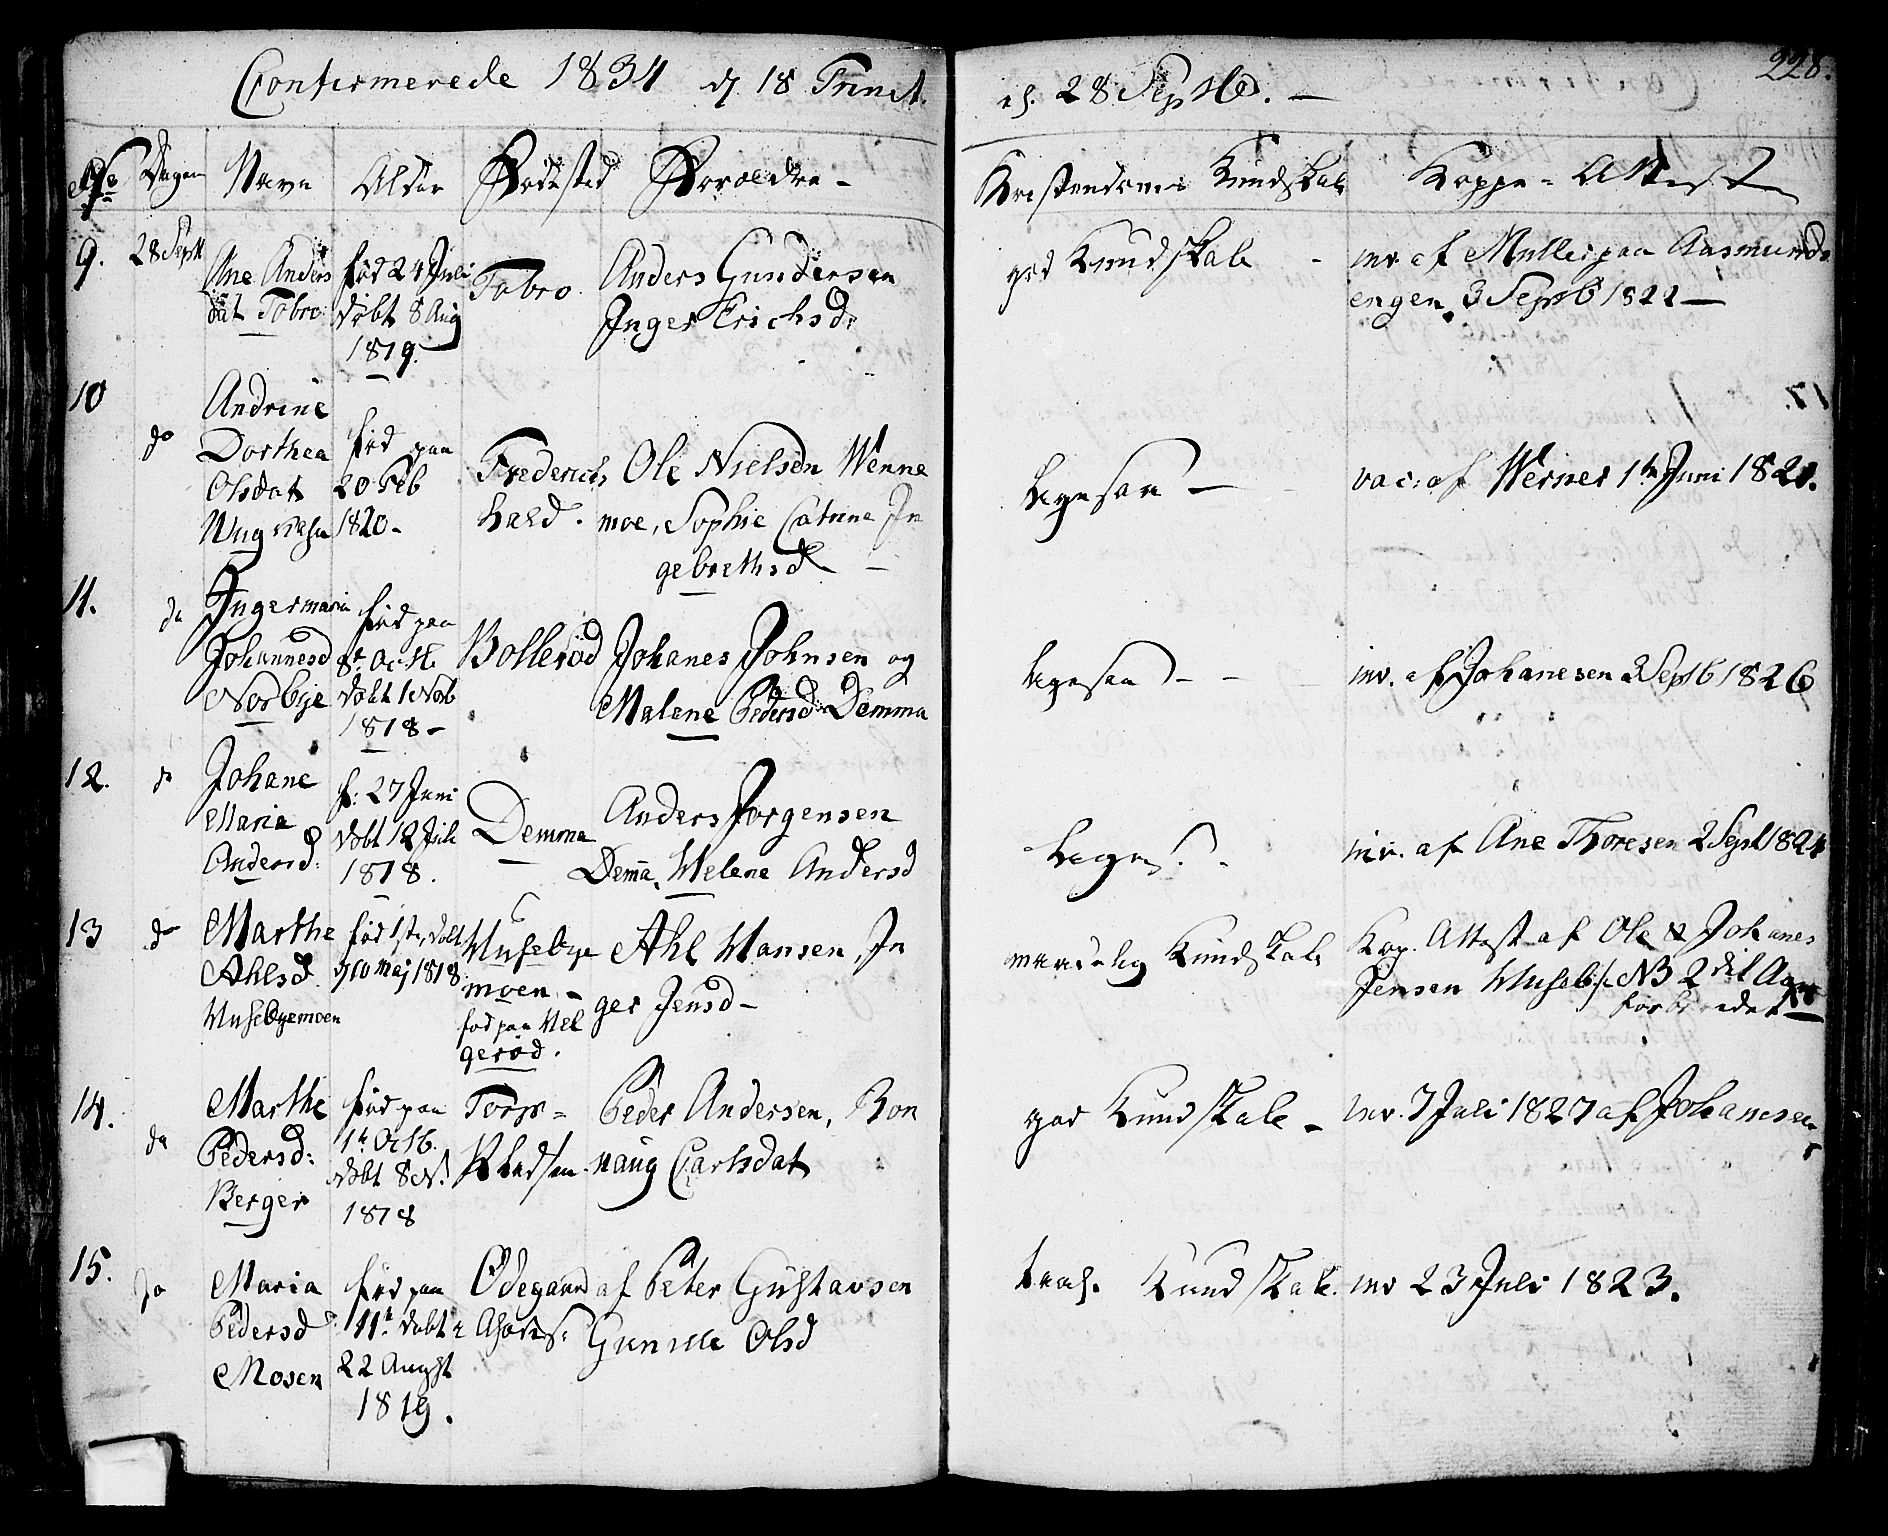 Confirmerede 1834 d 18 Trinit.
d. 28 Septb. —
228.
No Dagen Navn Alder Fødested Foroeldre -
Kristendoms Kundskab Koppe-Attest
9. 28 Septb
Ane Anders
dat Tobro
fød 24 Juli
døbt 8 Aug
1819.
Tobro
Anders Gundersen
Inger Erichsd:
god Kundskab -
inv af Müller paa Aasmunds
engen. 3 Septb 1822 —
10 do
Andrine
Dorthea
Olsdat
fød paa
20 Feb
1820 -
Frederichs
hald.
Ole Nielsen Wenne
moe, Sophie Catrine In
gebrethsd -
ligesaa —
vac: af Werner 1te Juni 1821.
11. do
Ingermaria
Johannesd
Norbye
fød paa
8de Octb.
døbt 1 Nov
1818 -
Bollerød
Johanes Johnsen og
Malene Pedersd Demma
ligesaa - -
inv. af Johanesen 3 Septb 1826
12. do
Johane
Maria
Andersd:
f: 27 Juni
døbt 12 Juli
1818.
Demma
Anders Jørgensen
Dema, Helene Andersd
liges. -
inv. af Ane Thoresen 2 Sept 1824
13 do
Marthe
Ahlsd.
Husebyemoen
fød 1ste, døbt
d 10 Maj 1818
Husebye
moen. -
fød paa Hel
gerød.
Ahl Hansen, In
ger Jensd -
maadelig Kundskab
Kop. Attest af Ole & Johanes
Jensen Huseb: NB 2det Aar
forberedet
14. do
Marthe
Pedersd:
Berger
fød paa
1te Octb.
døbt 8 N.
1818
Torp-
Pladsen
Peder Andersen, Ron
naug Carlsdat
god Kundskab -
inv. 7 Juli 1827 af Johanesen
15. do
Maria
Pedersd
Mosen
fød paa
11te døbt
22 Augst
1819.
Ødegaard
af Peter Gustavsen
Gunille Olsd
Kundskab.
inv 23 Juli 1823.